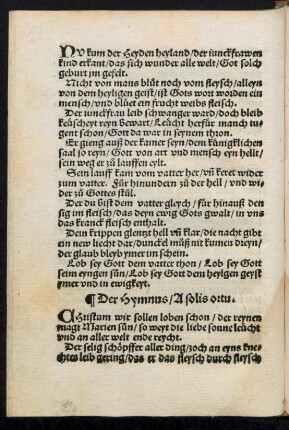 NV kum der Heyden heyland/der iunckfrawen
kind erkant/das sich wunder alle welt/Got solch
geburt jm gefelt.
Nicht von mans blůt noch vom fleysch/alleyn
von dem heyligen geist/ist Gots wort worden ein
mensch/vnd blüet ein frucht weibs fleisch.
Der iunckfrau leib schwanger ward/doch bleib
keüscheyt reyn bewart/Leücht herfür manch tu
gent schon/Gott da war in seynem thron.
Er gieng auß der kamer seyn/dem künigklichen
saal so reyn/Gott von art vnd mensch eyn hellt/
sein weg er zu lauffen eylt.
Sein lauff kam vom vatter her/vñ keret wider
zum vatter. Für hinundern zu der hell/vnd wi
der zu Gottes stůl.
Der du bist dem vatter gleych/für hinauß den
sig im fleisch/das deyn ewig Gots gwalt/in vns
das kranck fleisch enthalt.
Dein krippen glentzt hell vñ klar/die nacht gibt
ein new liecht dar/dunckel můß nit kumen dreyn/
der glaub bleyb ymer im schein.
Lob sey Gott dem vatter thon/Lob sey Gott
seim eyngen sůn/Lob sey Gott dem heyligen geyst
ymer vnd in ewigkeyt.
¶ Der Hymnus/A solis ortu.
CHristum wir sollen loben schon/der reynen
magt Marien sůn/so weyt die liebe sonne leücht
vnd an aller welt ende reycht.
Der selig schöpffer aller ding/zoch an eyns kne
chtes leib gering/das er das fleysch durch fleysch